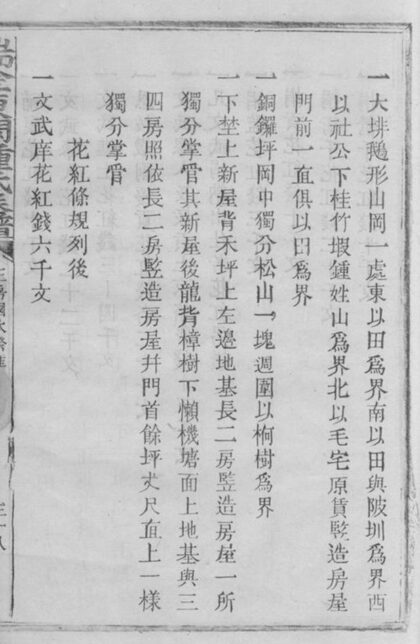 一大排𪃿形山岡一處東以田爲界南以田與陂圳爲界西
以社公下桂竹塅鍾姓山爲界北以毛宅原賃竪造房屋
門前一直俱以田爲界
一銅鑼坪岡中獨分松山一塊週圍以桐樹爲界
一下埜上新屋背禾坪上左邊地基長二房竪造房屋一所
獨分掌管其新屋後龍背樟樹下懶機塘面上地基與三
四房照依長二房竪造房屋幷門首餘坪丈尺直上一樣
獨分掌管
花紅條規列後
一文武庠花紅錢六千文